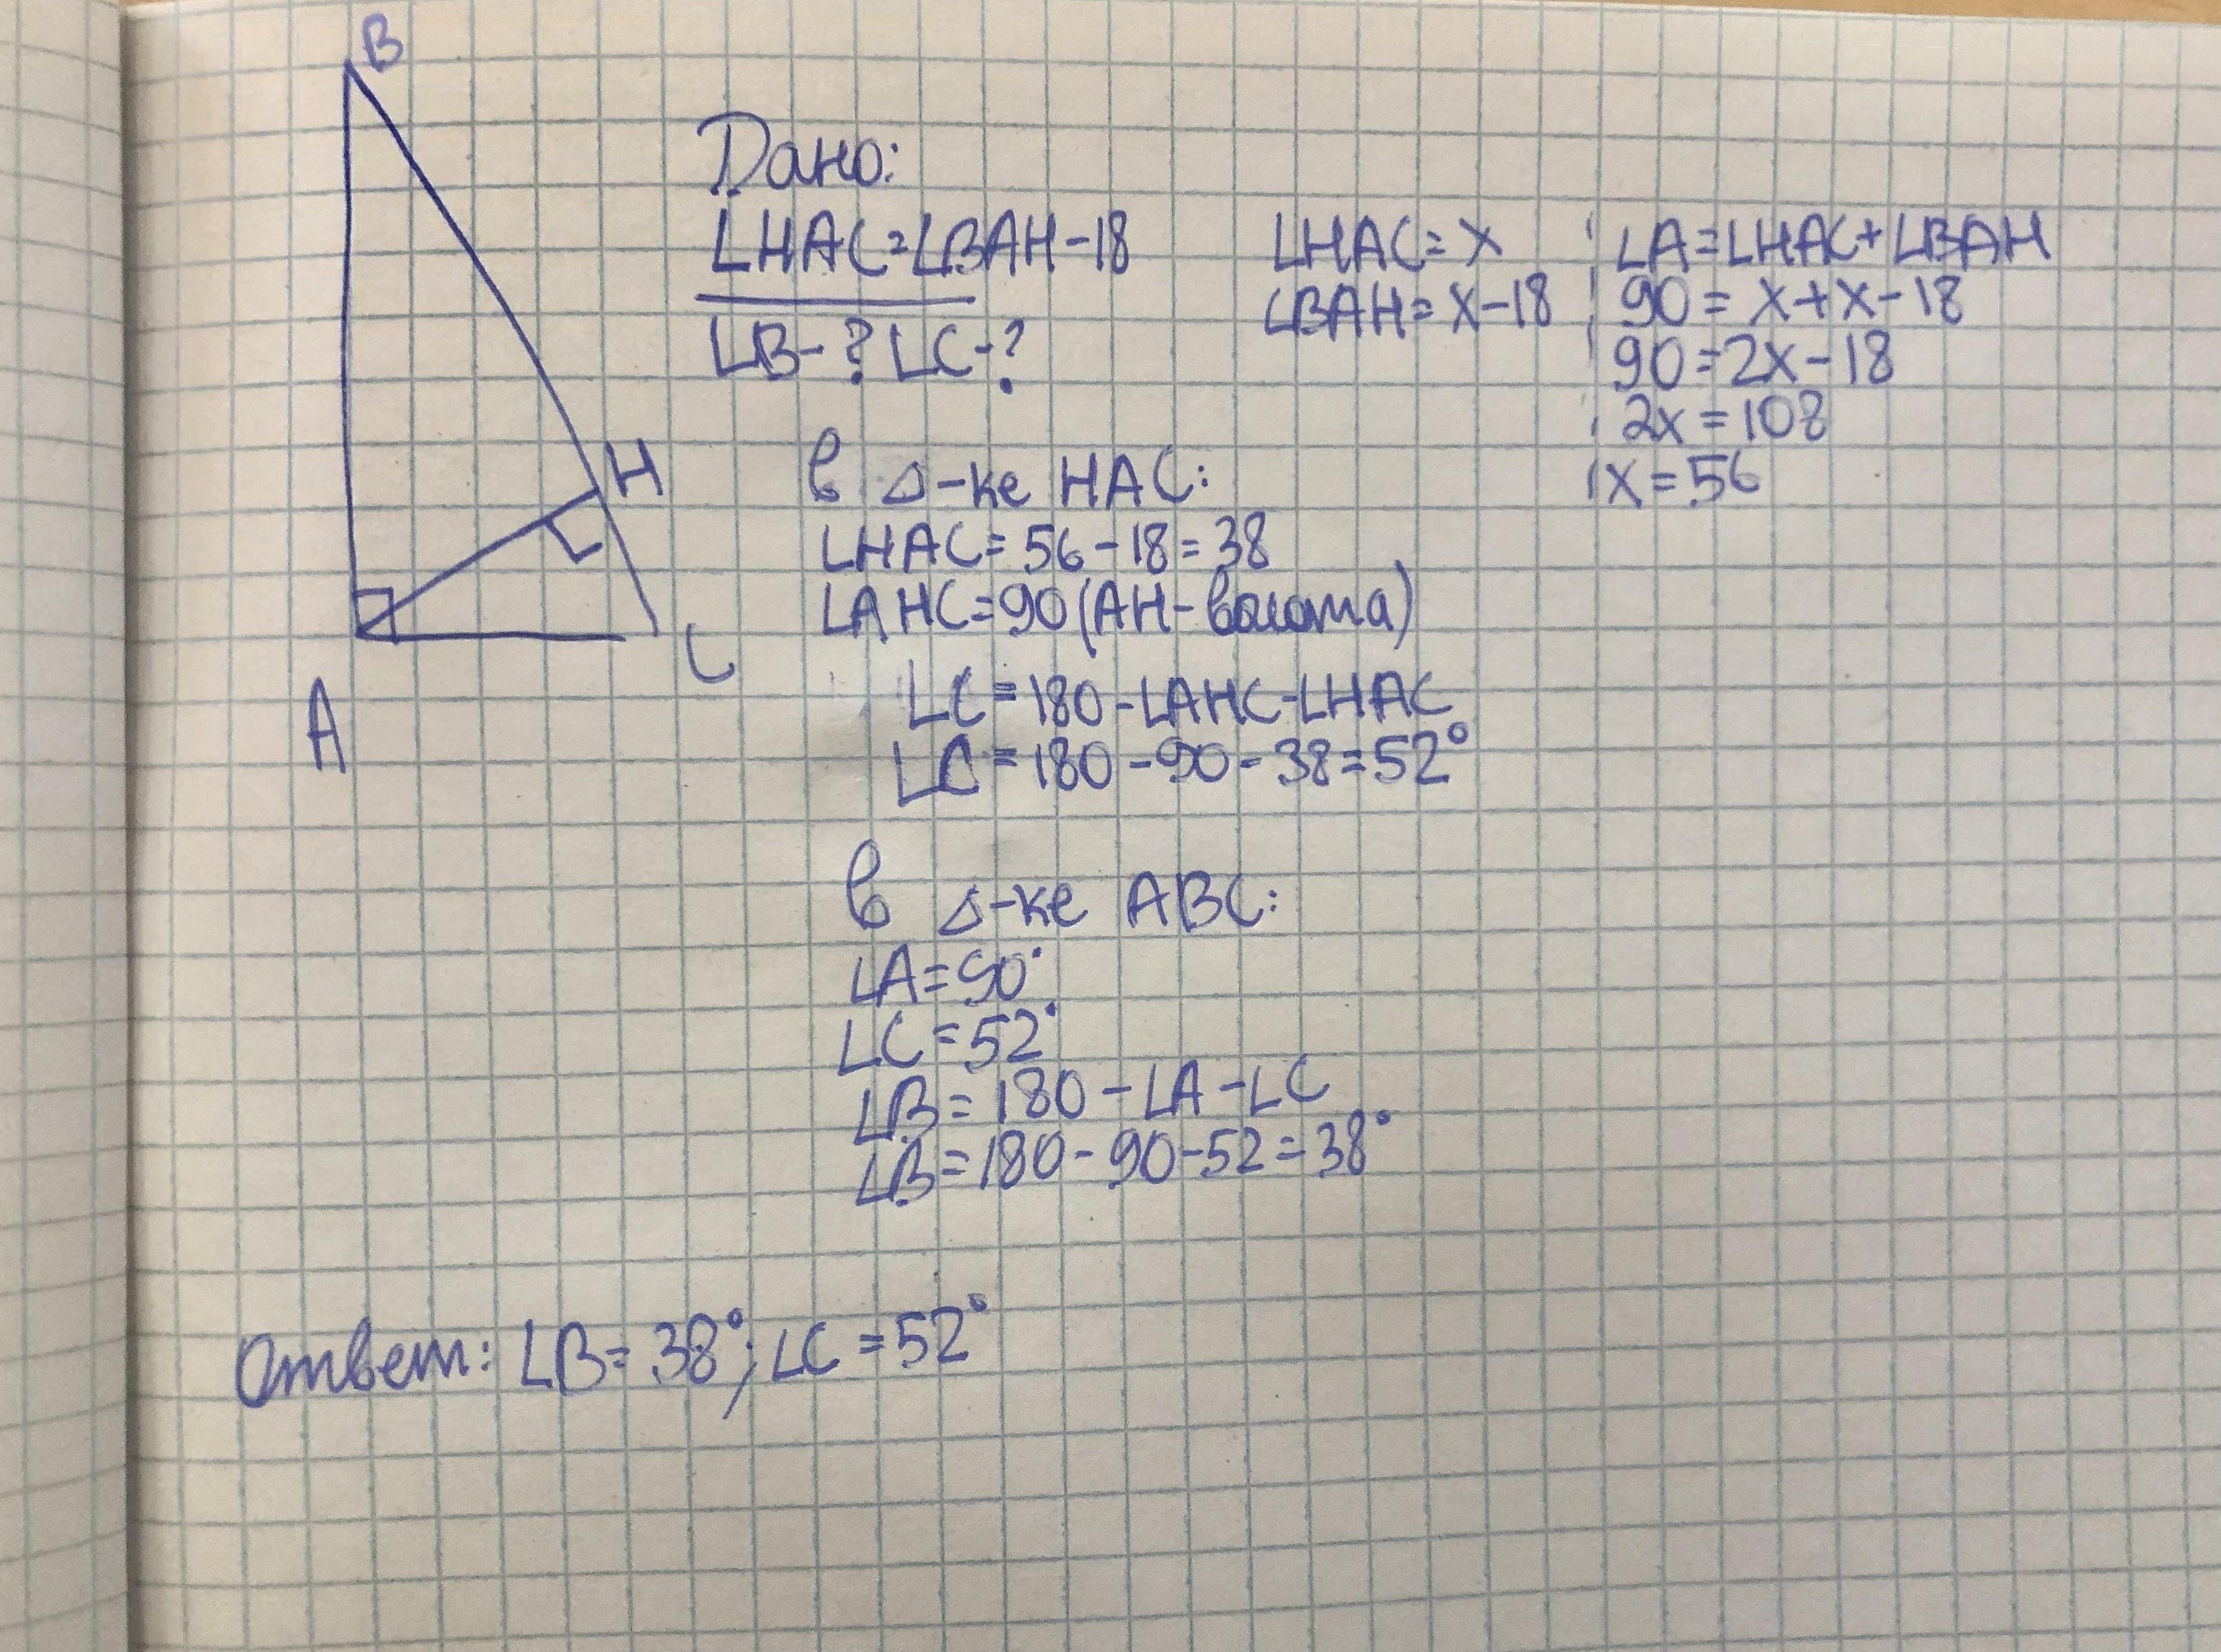 B
Дано:
∠HAC=∠BAH-18
∠B-? ∠C-?
∠HAC=x
∠BAH=x-18
∠A=∠HAC+∠BAH
90=x+x-18
90=2x-18
2x=108
x=56
H
A
C
В △-ке HAC:
∠HAC=56-18=38
∠AHC=90(AH-высота)
∠C=180-∠AHC-∠HAC
∠C=180-90-38=52°
В △-ке ABC:
∠A=90°
∠C=52°
∠B=180-∠A-∠C
∠B=180-90-52=38°
Ответ: ∠B=38°; ∠C=52°